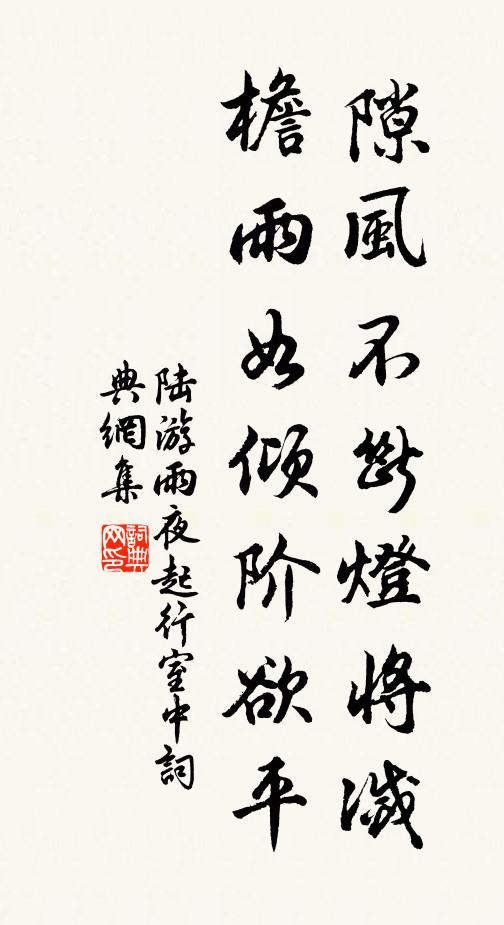 隙風不斷燈將滅
檐雨如傾阶欲平
陆游雨夜起行室中詞
典網集
詞典网印